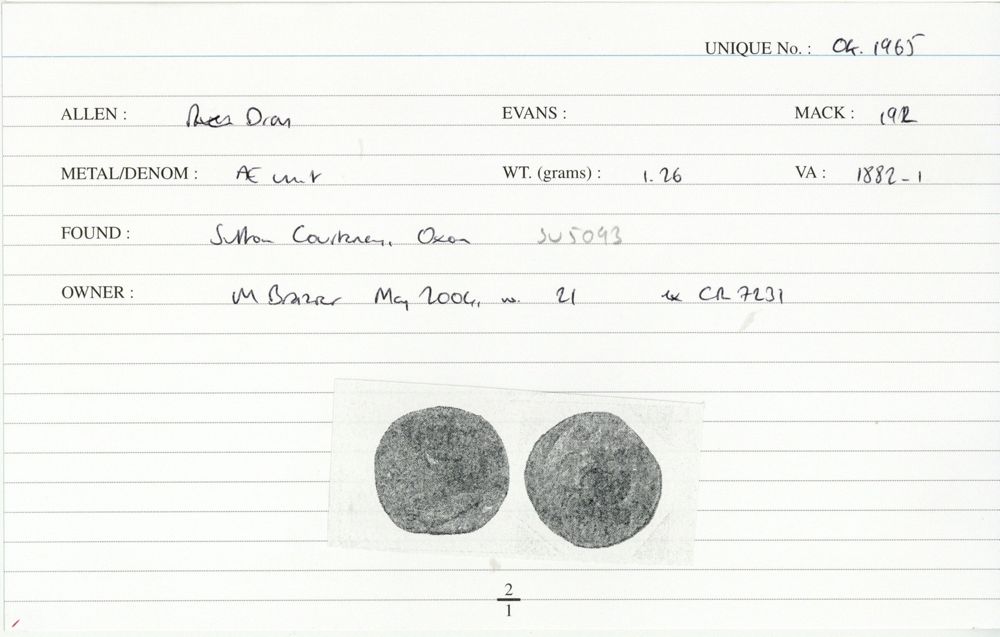 UNIQUE No. : 04. 1965
ALLEN : EVANS : MACK : 192
METAL/DENOM : Æ unit WT. (grams) : 1.26 VA : 1882-1
FOUND : Sutton Courtenay, Oxon SU5093
OWNER : M Brazier May 2004, no. 21 ex CR 7231
2
1